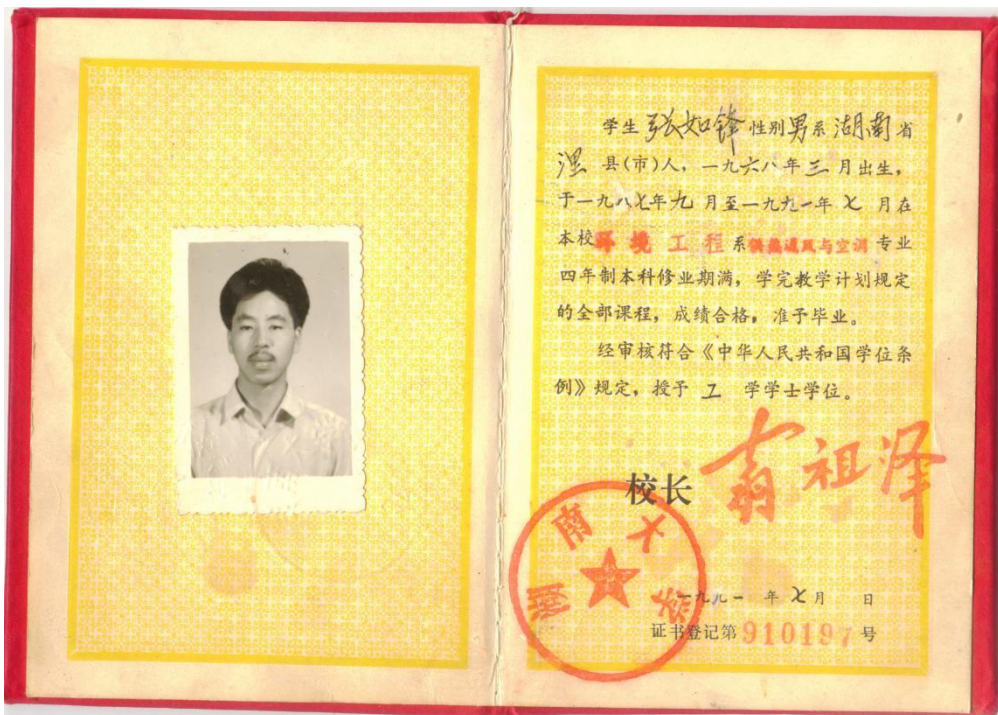 学生张如锋性别男系湖南省
澧县(市)人,一九六八年三月出生,
于一九八七年九月至一九九一年七月在
本校环境工程系供热通风与空调专业
四年制本科修业期满,学完教学计划规定
的全部课程,成绩合格,准予毕业。
经审核符合《中华人民共和国学位条
例》规定,授予工学学士学位。
校长 翁祖泽
湖南大学
一九九一年七月 日
证书登记第910197号